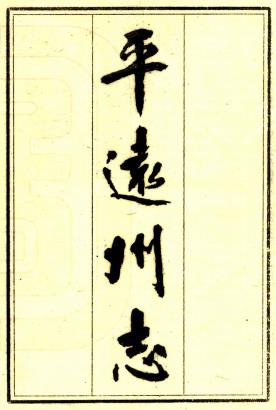 平遠州志